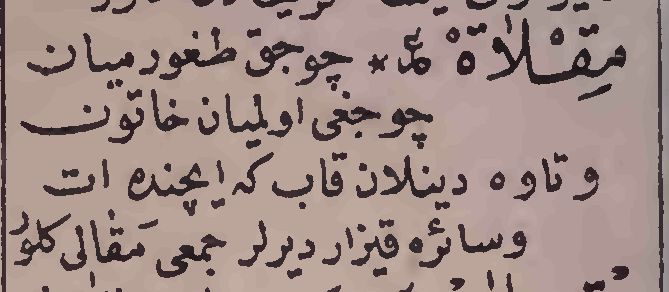 مِقْلَاةْ عر * چوجق طغورميان
چوجغى اولميان خاتون
و تاوه دينلان قاب كه ايچنده ات
وسائره قيزاردیرلر جمعى مَقَالى كلور